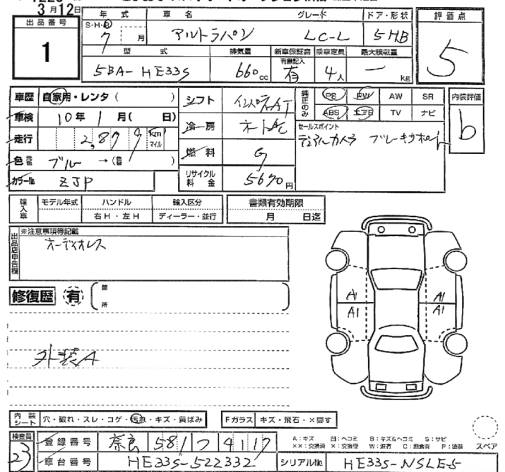 3月12日
出品番号
1
年式
車名
グレード
ドア・形状
評価点
S・H・R
7
月
アルトラパン
LC-L
5HB
5
型式
排気量
新車保証書
乗車定員
最大積載量
有無記入
5BA-HE33S
660cc
有
4人
kg
車歴 自家用・レンタ( )
シフト
インパネAT
純正のみ
PS PW AW SR
ABS エアB TV ナビ
内装評価
b
車検 10年1月( 日)
冷房
セールスポイント
デュアルカメラ ブレーキサポート
走行 2,879 Km マイル
燃料 G
色 ブルー →( )
リサイクル料金 5690円
カラー№ ZJP
輸入車
モデル年式
ハンドル
右H・左H
輸入区分
ディーラー・並行
書類有効期限
月 日迄
出品店申告欄
※注意事項等記載
オーディオレス
修復歴 有
箇所
外装A
A1 A1
A1 A1
内装シート
穴・破れ・スレ・コゲ・汚れ・キズ・員ばみ
Fガラス キズ・飛石・×要す
検査員
23
登録番号 奈良 581 つ 4117
車台番号 HE33S-522332
シリアル№ HE33S-NSLE-5
スペア